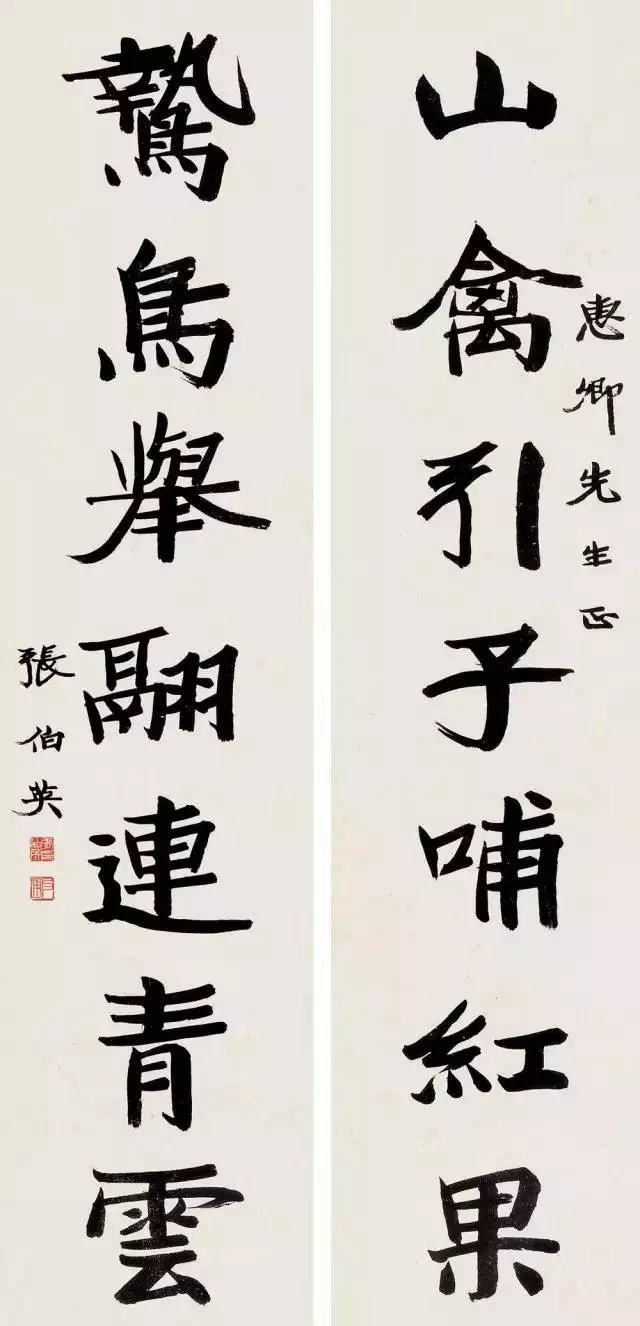 惠卿先生正
山禽引子哺紅果
鷙鳥舉翮連青雲
張伯英